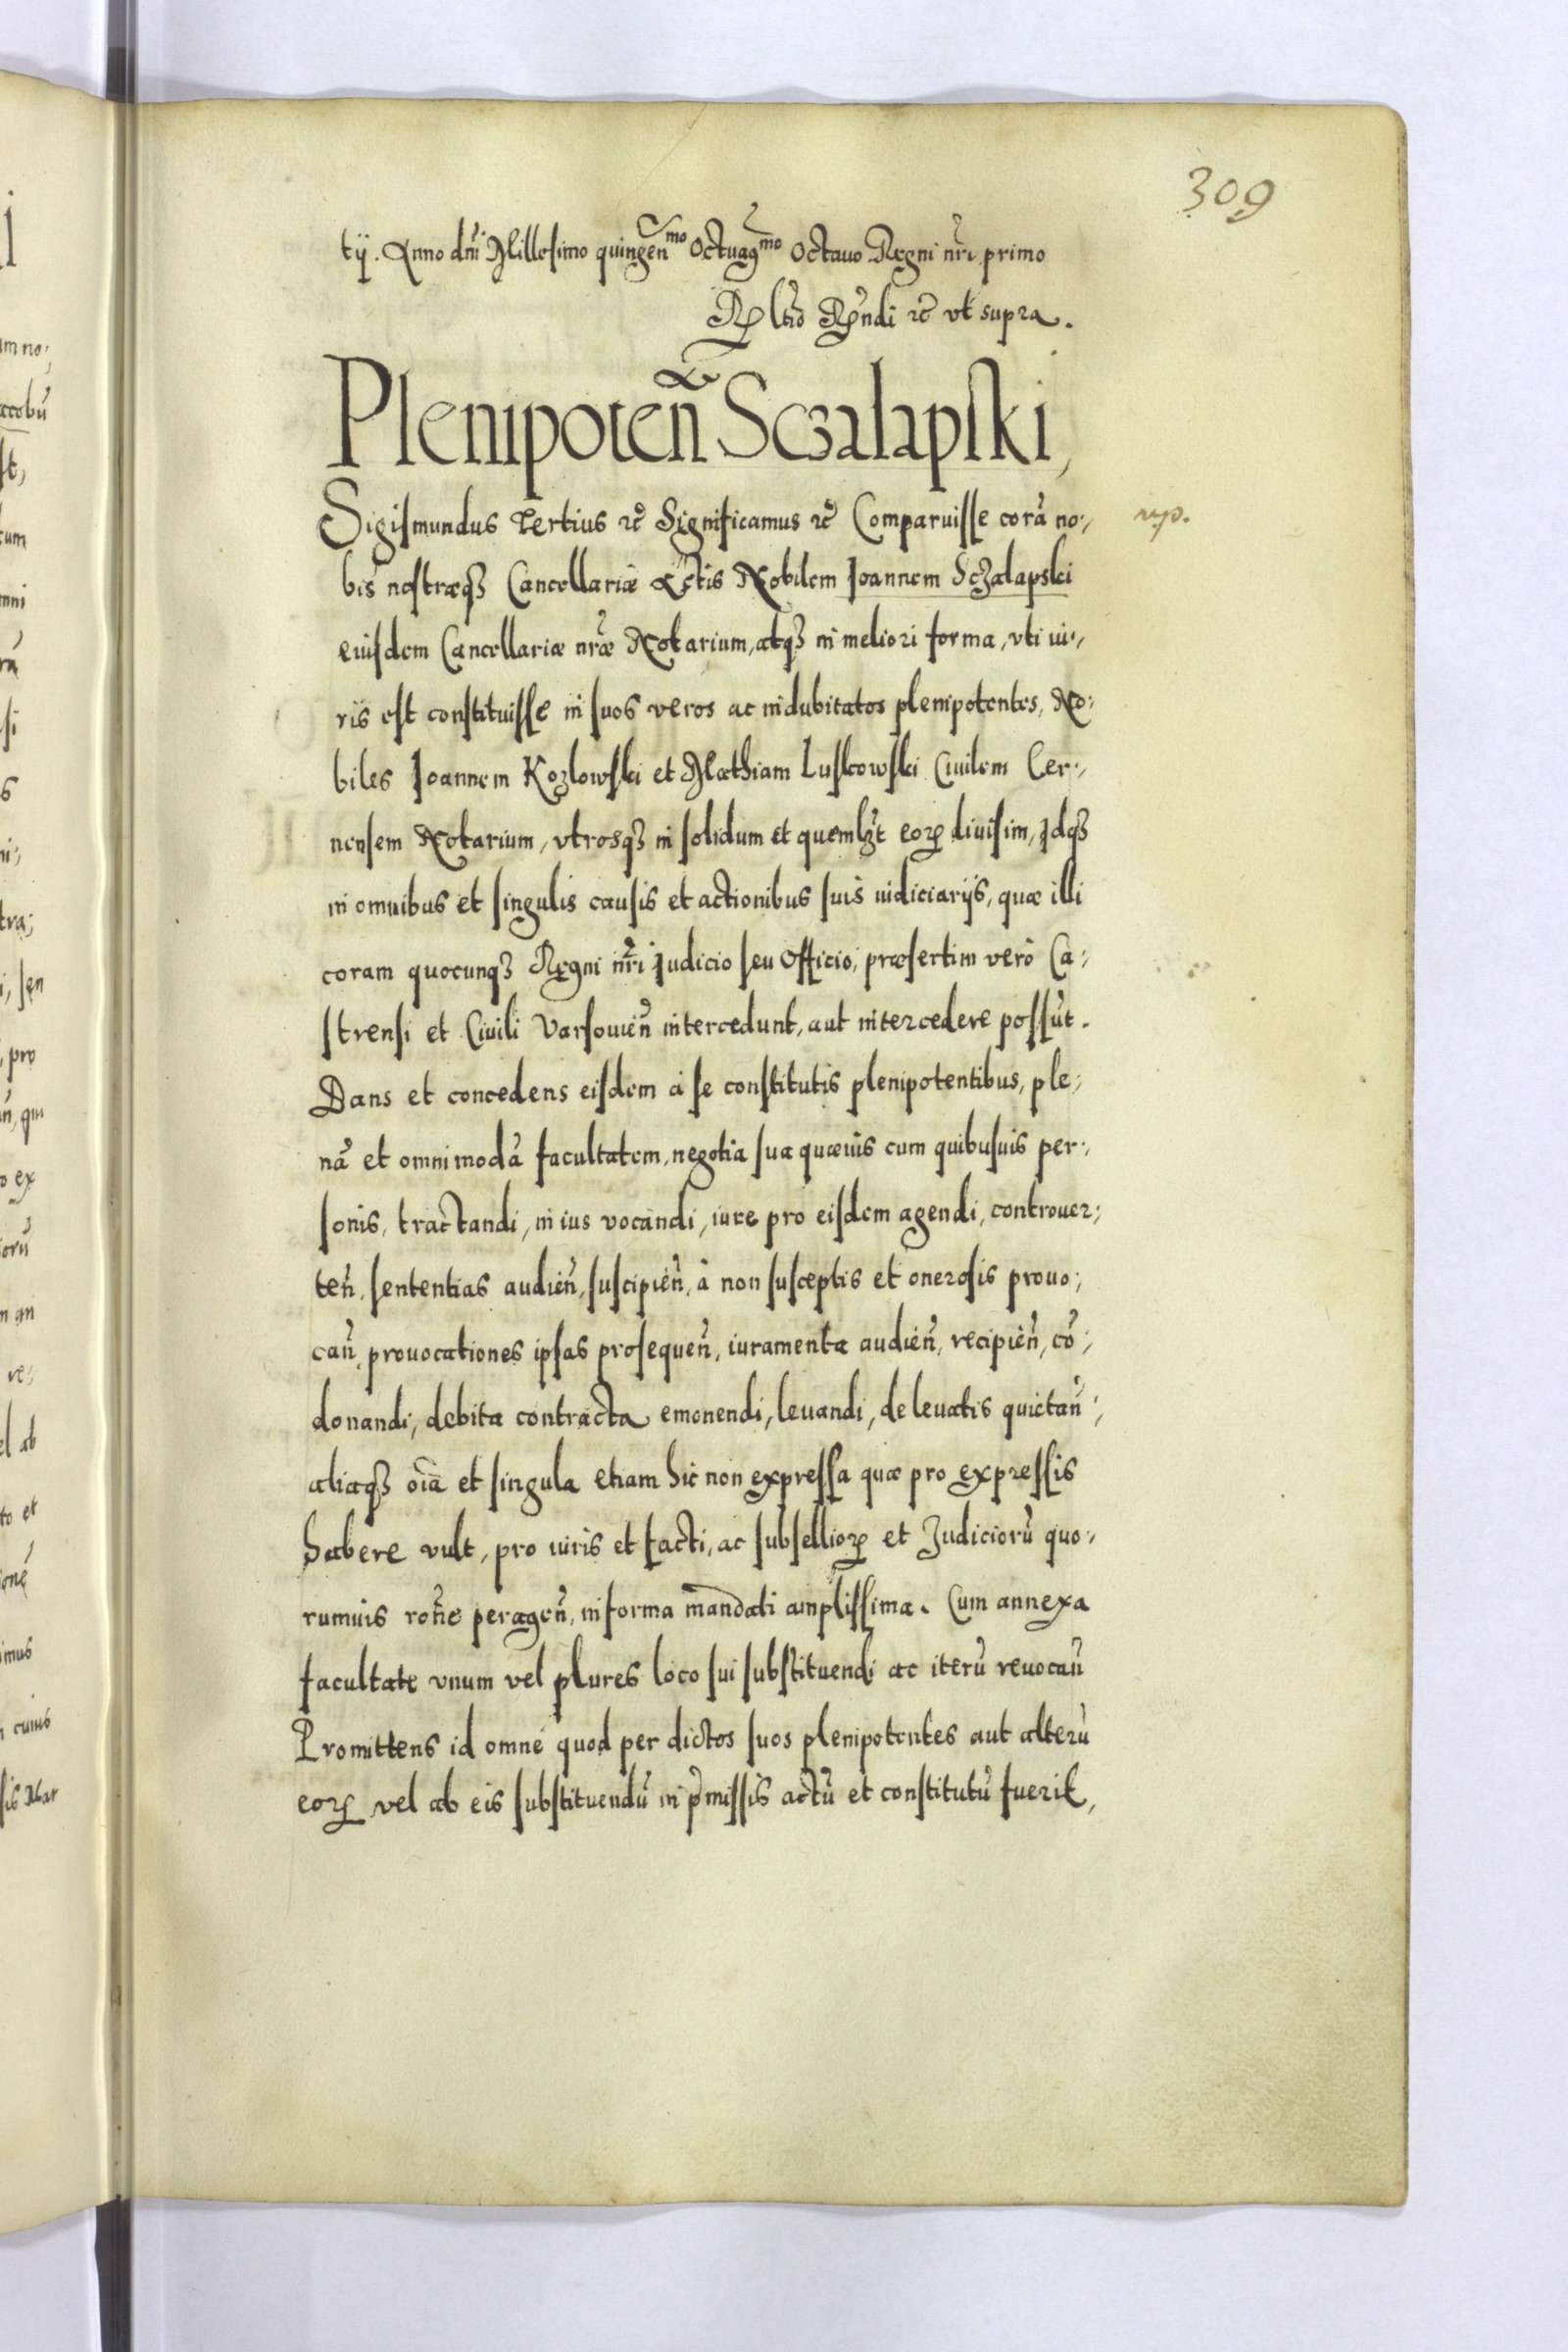 309
tij. Anno dni Millesimo quingen̄mo Octuag̃mo Octauo Regni nr̄i primo
Rp̄ ltio Rn̄di rc̄ vt supra.
Plenipoten̄ Sczalapski,
Sigismundus Tertius rc̄ Significamus rc̄ Comparuisse corā no-
bis nostræqȝ Cancellariæ Actis Nobilem Joannem Sczalapski
eiusdem Cancellariæ nr̄æ Notarium, atqȝ in meliori forma, vti iu-
ris est constituisse in suos veros ac indubitatos plenipotentes, No-
biles Joannem Kozlowski et Mathiam Luskowski Ciuilem Cer-
nensem Notarium, vtrosqȝ in solidum et quemlȝt eorꝝ diuisim, Idqȝ
in omnibus et singulis causis et actionibus suis iudiciarijs, quæ illi
coram quocunqȝ Regni nr̄i Judicio seu Officio, præsertim verò Ca-
strensi et Ciuili Varsouien̄ intercedunt, aut intercedere possūt.
Dans et concedens eisdem à se constitutis plenipotentibus, ple-
nā et omnimodā facultatem, negotia sua quæuis cum quibusuis per-
sonis, tractandi, in ius vocandi, iure pro eisdem agendi, controuer-
ten̄, sententias audien̄, suscipien̄, à non susceptis et onerosis prouo-
can̄, prouocationes ipsas prosequen̄, iuramenta audien̄, recipien̄, cō-
donandi, debita contracta emonendi, leuandi, de leuatis quietan̄,
aliaqȝ oīa et singula etiam hic non expressa quæ pro expressis
habere vult, pro iuris et facti, ac subselliorꝝ et Judiciorū quo-
rumuis ron̄e peragen̄, in forma mandati amplissima. Cum annexa
facultate vnum vel plures loco sui substituendi ac iterū reuocan̄
Promittens id omne quod per dictos suos plenipotentes aut alterū
eorꝝ vel ab eis substituendū in p̄missis actū et constitutū fuerit,